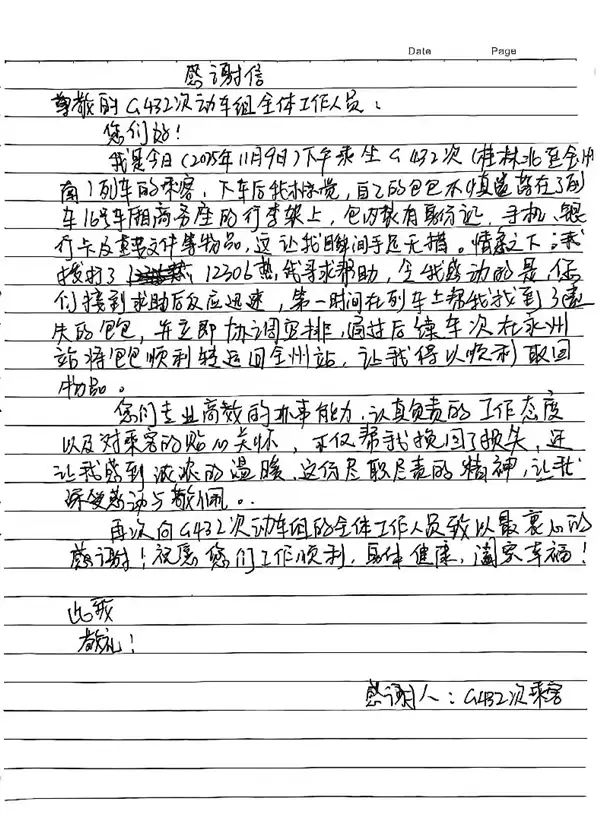 Date Page
感谢信
尊敬的G432次动车组全体工作人员：
您们好！
我是今日(2025年11月9日)下午乘坐G432次(桂林北至全州
南)列车的乘客，下车后我才惊觉，自己的包包不慎遗留在了列
车16号车厢商务座的行李架上，包内装有身份证、手机、银
行卡及重要文件等物品，这让我瞬间手足无措。情急之下，我
拨打了 12306热线寻求帮助，令我感动的是你
们接到求助后反应迅速，第一时间在列车上帮我找到了遗
失的包包，并立即协调安排，通过后续车次在永州
站将包包顺利转运回全州站，让我得以顺利取回
物品。
您们专业高效的办事能力、认真负责的工作态度
以及对乘客的贴心关怀，不仅帮我挽回了损失，还
让我感到浓浓的温暖。这份尽职尽责的精神，让我
深受感动与敬佩。
再次向G432次动车组的全体工作人员致以最衷心的
感谢！祝愿您们工作顺利，身体健康，阖家幸福！
此致
敬礼！
感谢人：G432次乘客